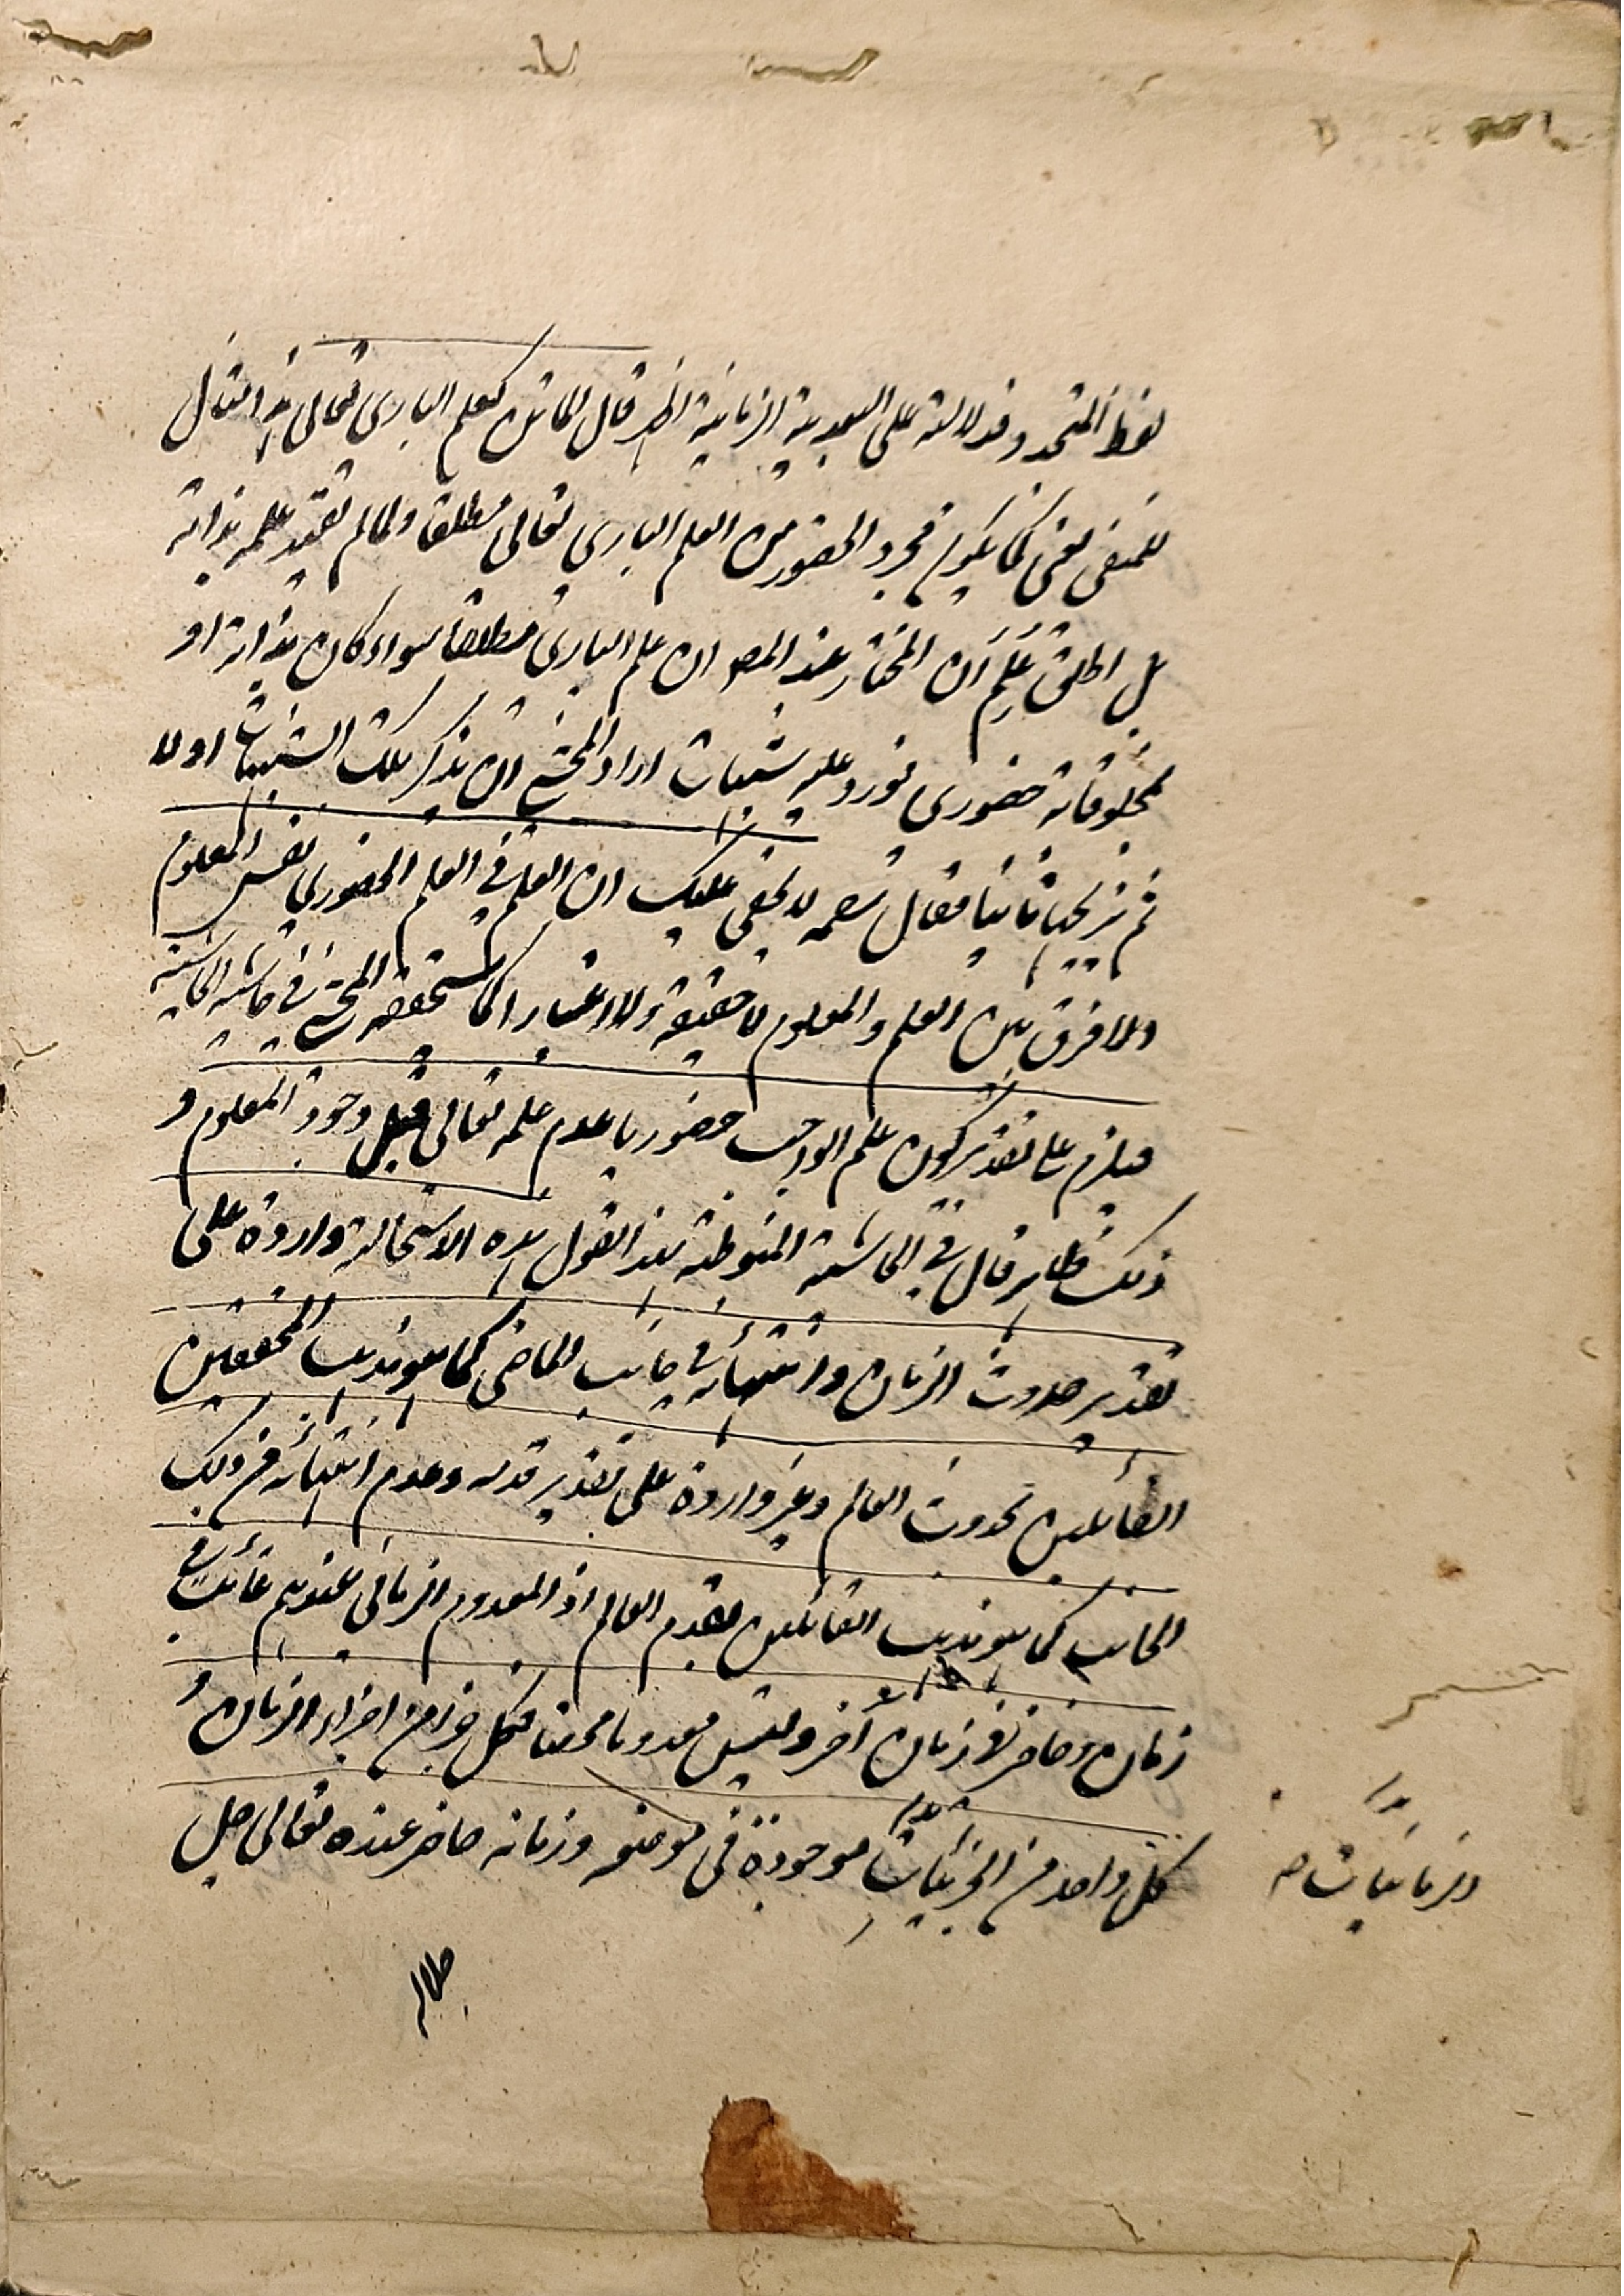 لفظ المتجدد فدلالته على البعدية الزمانية اظهر قال الماتن كعلم الباري تعالى هذا مثال
للمنفى يعنى كما يكون مجرد الحضور من العلم الباري تعالى مطلقا ولما لم يقيد علمه بذاته
بل اطلق عُلِمَ أن المختار عند المصـ ان علم الباري مطلقا سواء كان بذاته او
بمخلوقاته حضورى فورد عليه شبهات اراد المحشي ان يذكر تلك الشبهات اولا
ثم يزيلها ثانيا فقال لا يخفى عليك ان العلم في العلم الحضوري نفس المعلوم
ولا فرق بين العلم والمعلوم لا حقيقة ولا اعتبارا كما ستحققه المحشي في حاشية الحاشية
فيلزم على تقدير كون علم الواجب حضوريا عدم علمه تعالى قبل وجود المعلوم و
ذلك ظاهر قال في الحاشية المنوطة بهذا القول هذه الاستحالة واردة على
تقدير حدوث الزمان وانتهائه في جانب الماضي كما هو مذهب المحققين
القائلين بحدوث العالم وغير واردة على تقدير قدمه وعدم انتهائه من ذلك
الجانب كما هو مذهب القائلين بقدم العالم اذ المعدوم الزماني عندهم غائب في
زمان وحاضر في زمان آخر وليس معدوما محضا فكل جزء من اجزاء الزمان و
كل واحد من الجزئيات موجودة في موضعه وزمانه حاضر عنده تعالى جل
والزمانيات صح
جلاله